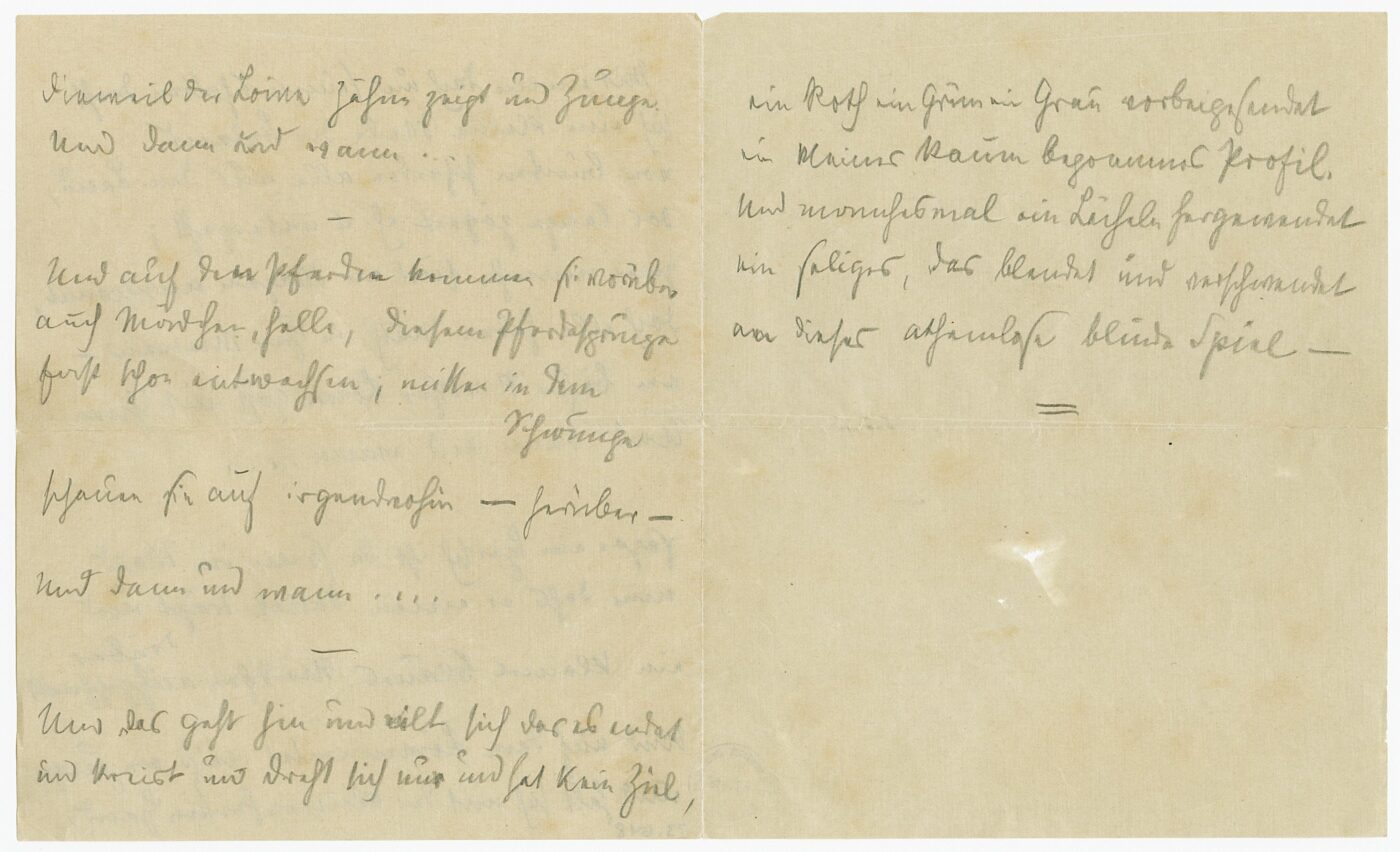 dieweil der Löwe Zähne zeigt und Zunge.
Und dann und wann...
—
Und auf den Pferden kommen sie vorüber
auch Mädchen, helle, diesem Pferdesprunge
fast schon entwachsen; mitten in dem
Schwunge
schauen sie auf irgendwohin — herüber —
Und dann und wann....
—
Und das geht hin und eilt sich das es endet
und kreist und dreht sich nur und hat kein Ziel,
ein Roth ein Grün ein Grau vorbeigesendet
ein kleines kaum begonnenes Profil.
Und manchesmal ein Lächeln hergewendet
ein seliges, das blendet und verschwendet
an dieses athemlose blinde Spiel —